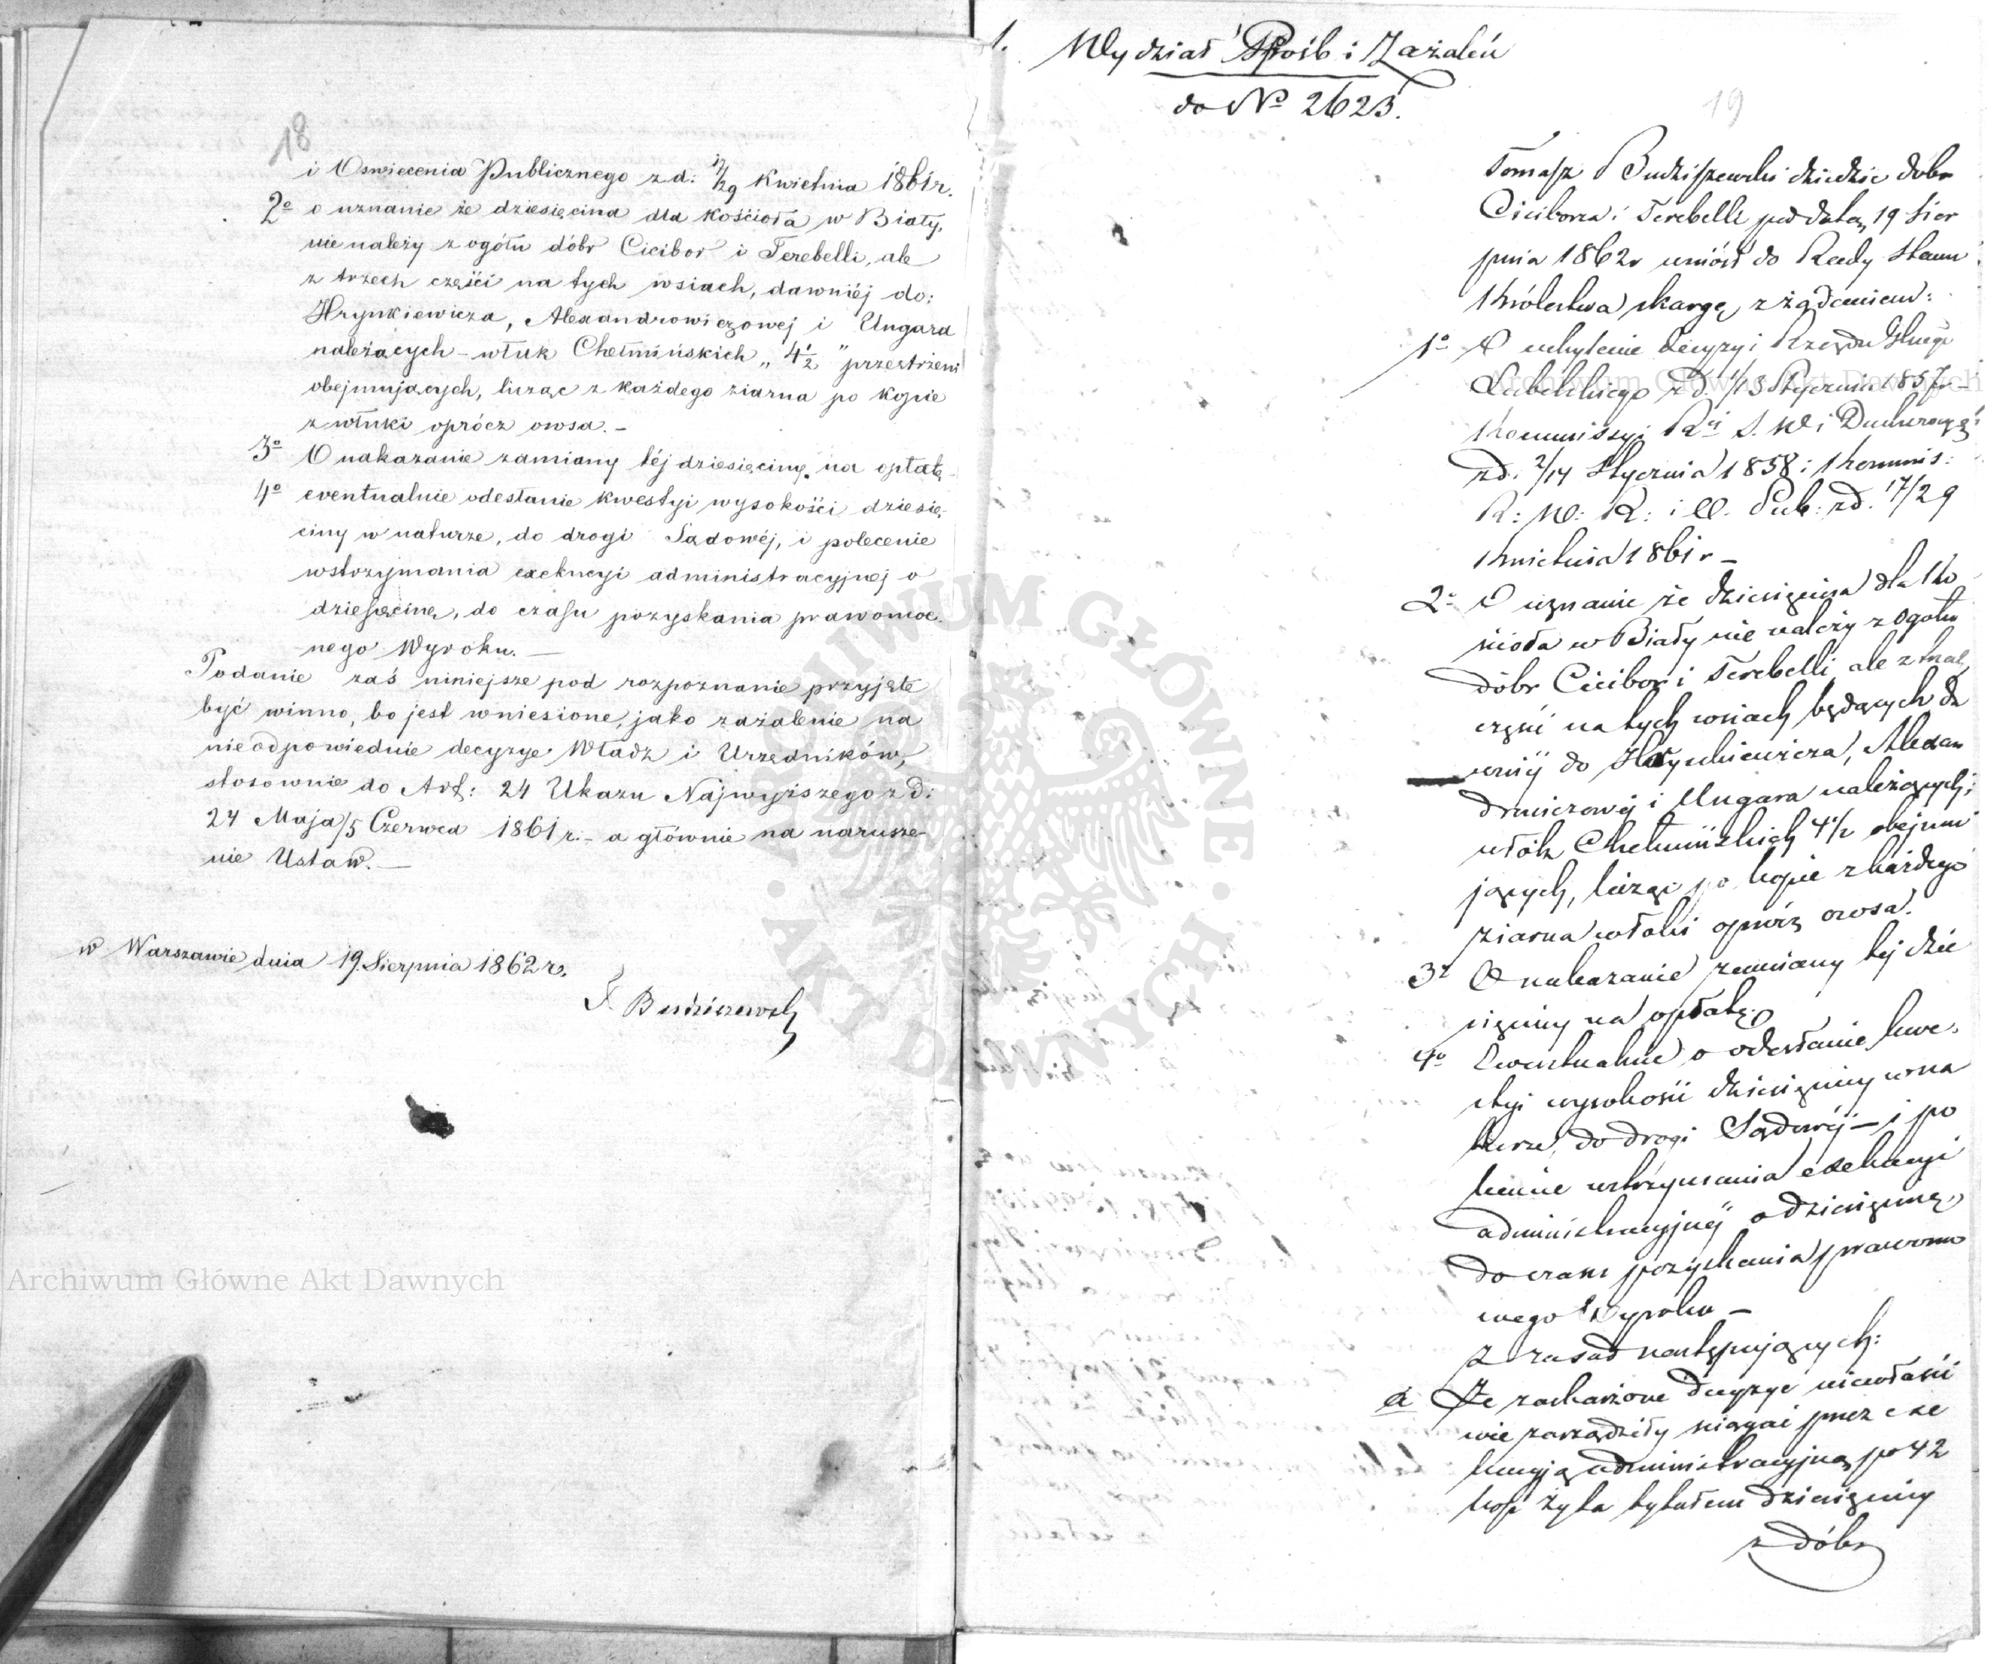 18
i Oswiecenia Publicznego z d: 17/29 Kwietnia 1861 r.
2o o uznanie że dziesięcina dla kościoła w Biały,
nie należy z ogółu dóbr Cicibor i Terebelli, ale
z trzech części na tych wsiach, dawniéj do:
Hrynkiewicza, Alexandrowiczowej i Ungara
należących – włuk Chełmińskich „ 4 1/2 " przestrzeni
obejmujących, licząc z każdego ziarna po kopie
z włuki oprócz owsa. –
3o O nakazanie zamiany téj dziesięciny na opłatę –
4o eventualnie odesłanie kwestyi wysokości dziesię-
ciny w naturze, do drogi Sądowéj, i polecenie
wstrzymania exekucyi administracyjnej o
dziesęcinę, do czasu pozyskania prawomoc-
nego Wyroku. —
Podanie zaś niniejsze pod rozpoznanie przyjęte
być winno, bo jest wniesione, jako zażalenie na
nieodpowiednie decyzye Władz i Urzędników,
stosownie do Art: 24 Ukazu Najwyższego z d:
24 Maja/5 Czerwca 1861 r. – a głównie na narusze-
nie Ustaw. —
w Warszawie dnia 19 Sierpnia 1862 r.
T. Budziszewski
Archiwum Główne Akt Dawnych
1. Wydział Próśb i Zażaleń
do No 2623.
19
Tomasz Budziszewski dziedzic dóbr
Cicibora i Terebelli pod datą 19 Sier
pnia 1862 r wniósł do Rady Stanu
Królestwa skargę, z żądaniem:
1o O uchylenie decyzyi Rządu Gbugo
Lubelskiego z d. 1/13 Stycznia 1857 r –
Kommissyi R S. W i Duchownych
z d. 2/14 Stycznia 1858 i Kommis:
R: W: R: i O. Pub: z d. 17/29
Kwietnia 1861 r –
2o O uznanie że dziesięcina dla Ko
ścioła w Biały nie należy z ogółu
dóbr Cicibor i Terebelli, ale z trzech
części na tych wsiach będących da
wniéj do Hrynkiewicza, Alexan
drowiczowéj i Ungara należących i
włók Chełmińskich 4 1/2 obejmu
jących, licząc po kopie z każdego
ziarna z włoki oprócz owsa.
3o O nakazanie zamiany téj dzie
sięciny na opłatę.
4o Ewentualnie o odesłanie kwe-
styi wysokości dziesięciny w na
turze, do drogi Sądowéj – i po
lecenie wstrzymania exekucyi
administracyjnéj o dziesięcinę,
do czasu pozyskania prawomo
cnego Wyroku –
Z zasad następujących:
a Że zaskarżone decyzye niewłaści
wie zarządziły ściągać przez exe
kucyję administracyjną po 42
kop żyta tytułem dziesięciny
z dóbr
Archiwum Główne Akt Dawnych
ARCHIWUM GŁÓWNE · AKT DAWNYCH ·